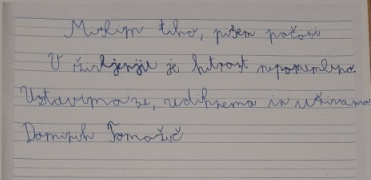 Mislim tiho, pišem počasi
V življenju je hitrost nepomembna.
Ustavimo se, zadihamo in uživamo
Dominik Tomažič